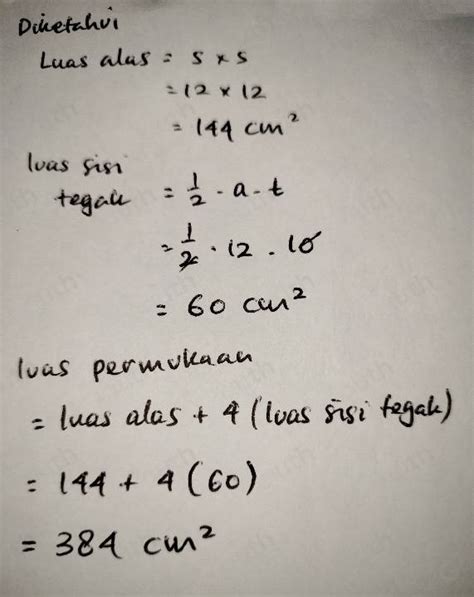 Diketahui
Luas alas = s x s
= 12 x 12
= 144 cm²
luas sisi
tegak = 1/2 . a . t
= 1/2 . 12 . 10
= 60 cm²
luas permukaan
= luas alas + 4 (luas sisi tegak)
= 144 + 4 (60)
= 384 cm²